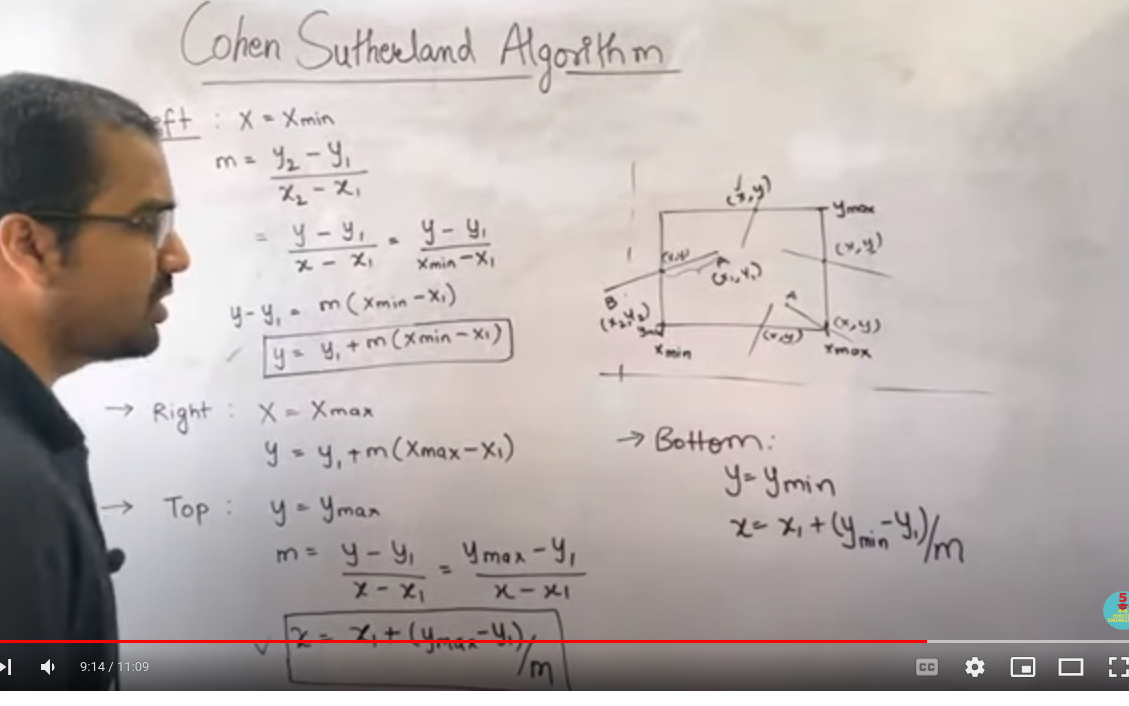 Cohen Sutherland Algorithm
eft : x = xmin
m = y₂ - y₁ / x₂ - x₁
= y - y₁ / x - x₁ = y - y₁ / xmin - x₁
y - y₁ = m (xmin - x₁)
y = y₁ + m (xmin - x₁)
→ Right : x = xmax
y = y₁ + m (xmax - x₁)
→ Top : y = ymax
m = y - y₁ / x - x₁ = ymax - y₁ / x - x₁
x = x₁ + (ymax - y₁) / m
(x, y)
ymax
(x, y)
(x, y)
A
(x₁, y₁)
B
(x₂, y₂)
A
(x, y)
(x, y)
xmin
xmax
→ Bottom :
y = ymin
x = x₁ + (ymin - y₁) / m
9:14 / 11:09
CC